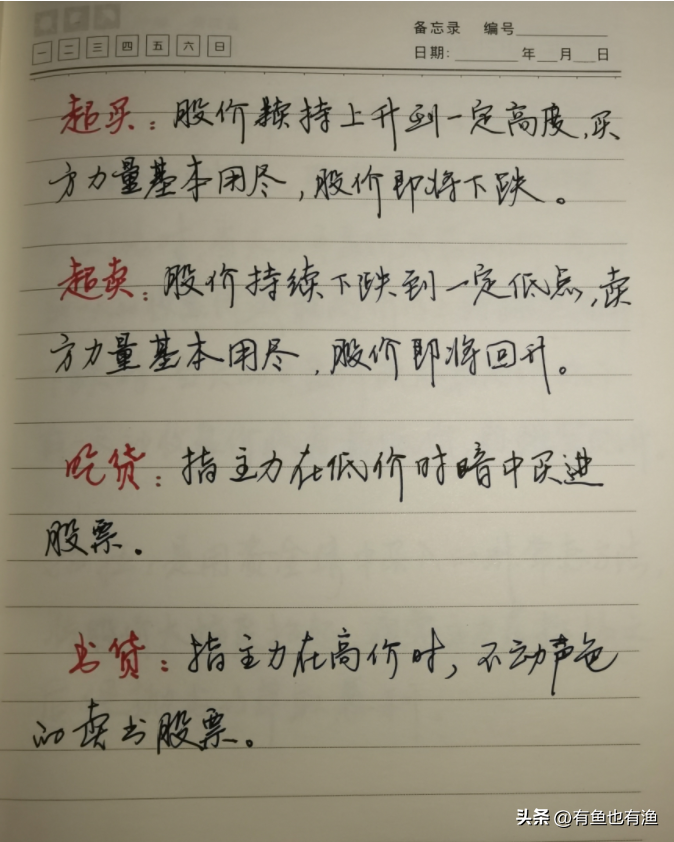 备忘录 编号
一 二 三 四 五 六 日
日期: 年 月 日
超买：股价持上升到一定高度,买
方力量基本用尽,股价即将下跌。
超卖：股价持续下跌到一定低点,卖
方力量基本用尽,股价即将回升。
吃货：指主力在低价时暗中买进
股票。
出货：指主力在高价时,不动声色
的卖出股票。
头条 @有鱼也有渔